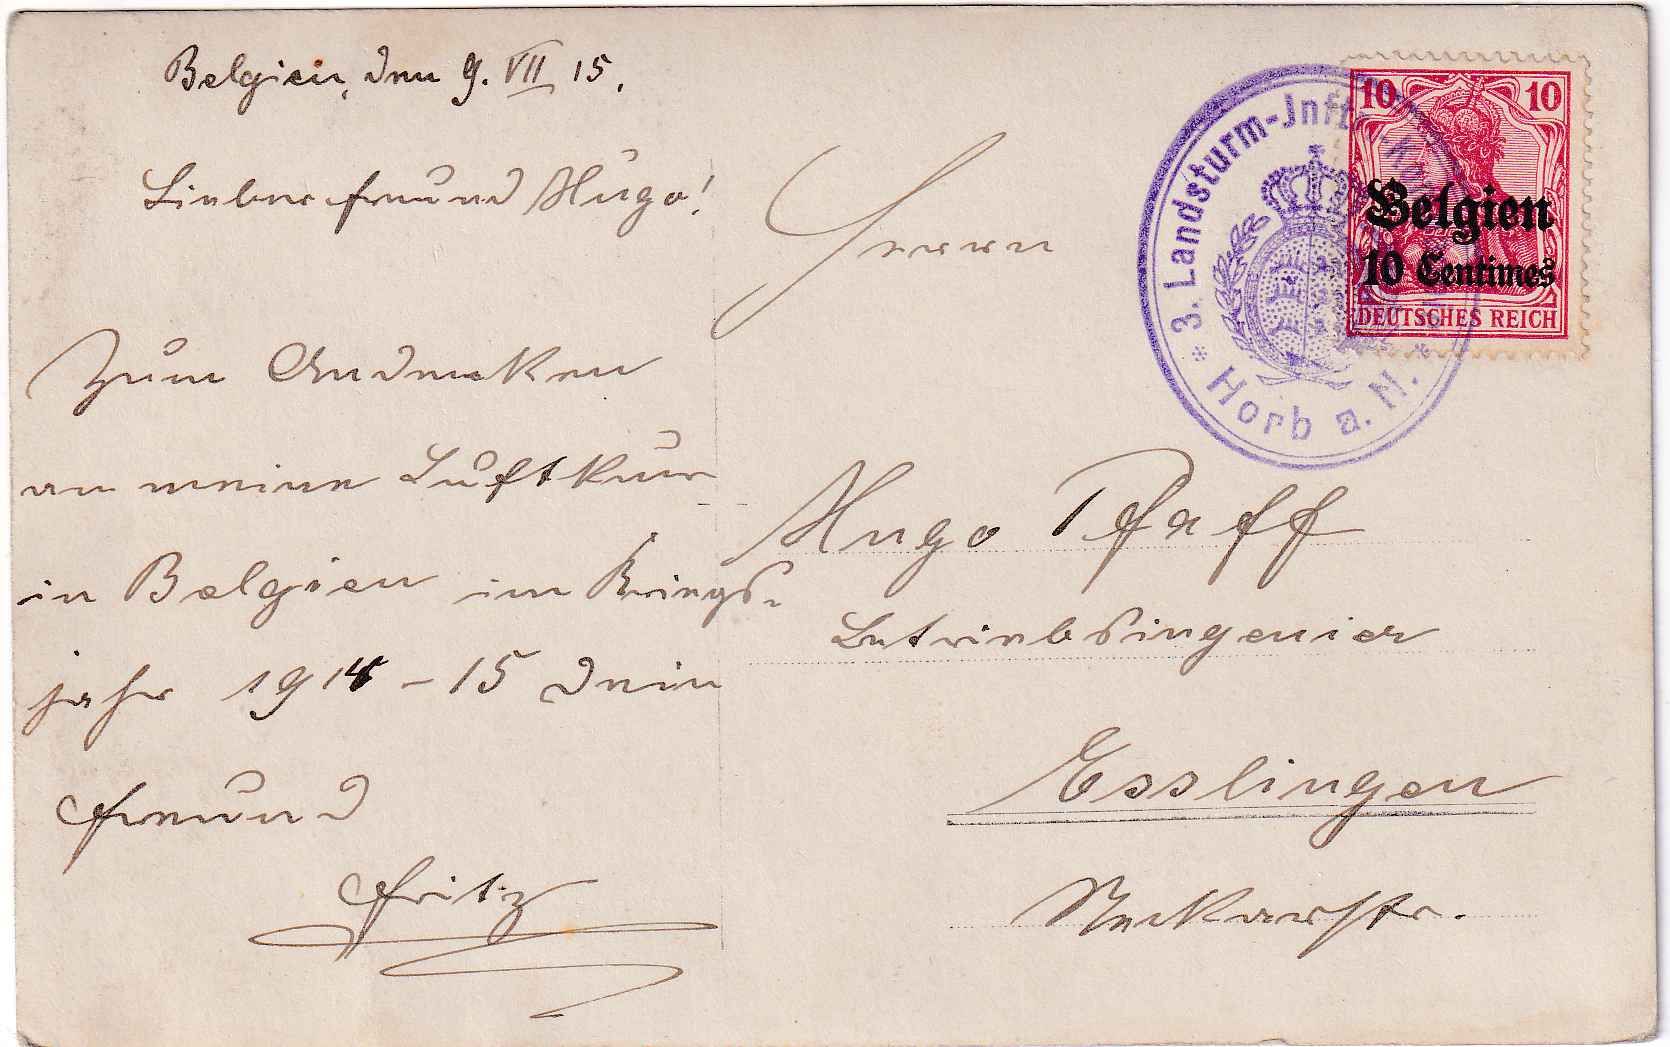 Belgien, den 9. VII 15.
Lieber Freund Hugo!
Zum Andenken
an meine Luftkur
in Belgien im Kriegs-
jahr 1914-15 Dein
Freund
Fritz
Herrn
Hugo Pfaff
Betriebsingenieur
Esslingen
Neckarstr.
* 3. Landsturm-Inft.
Horb a. N. *
10 10
Belgien
10 Centimes
DEUTSCHES REICH